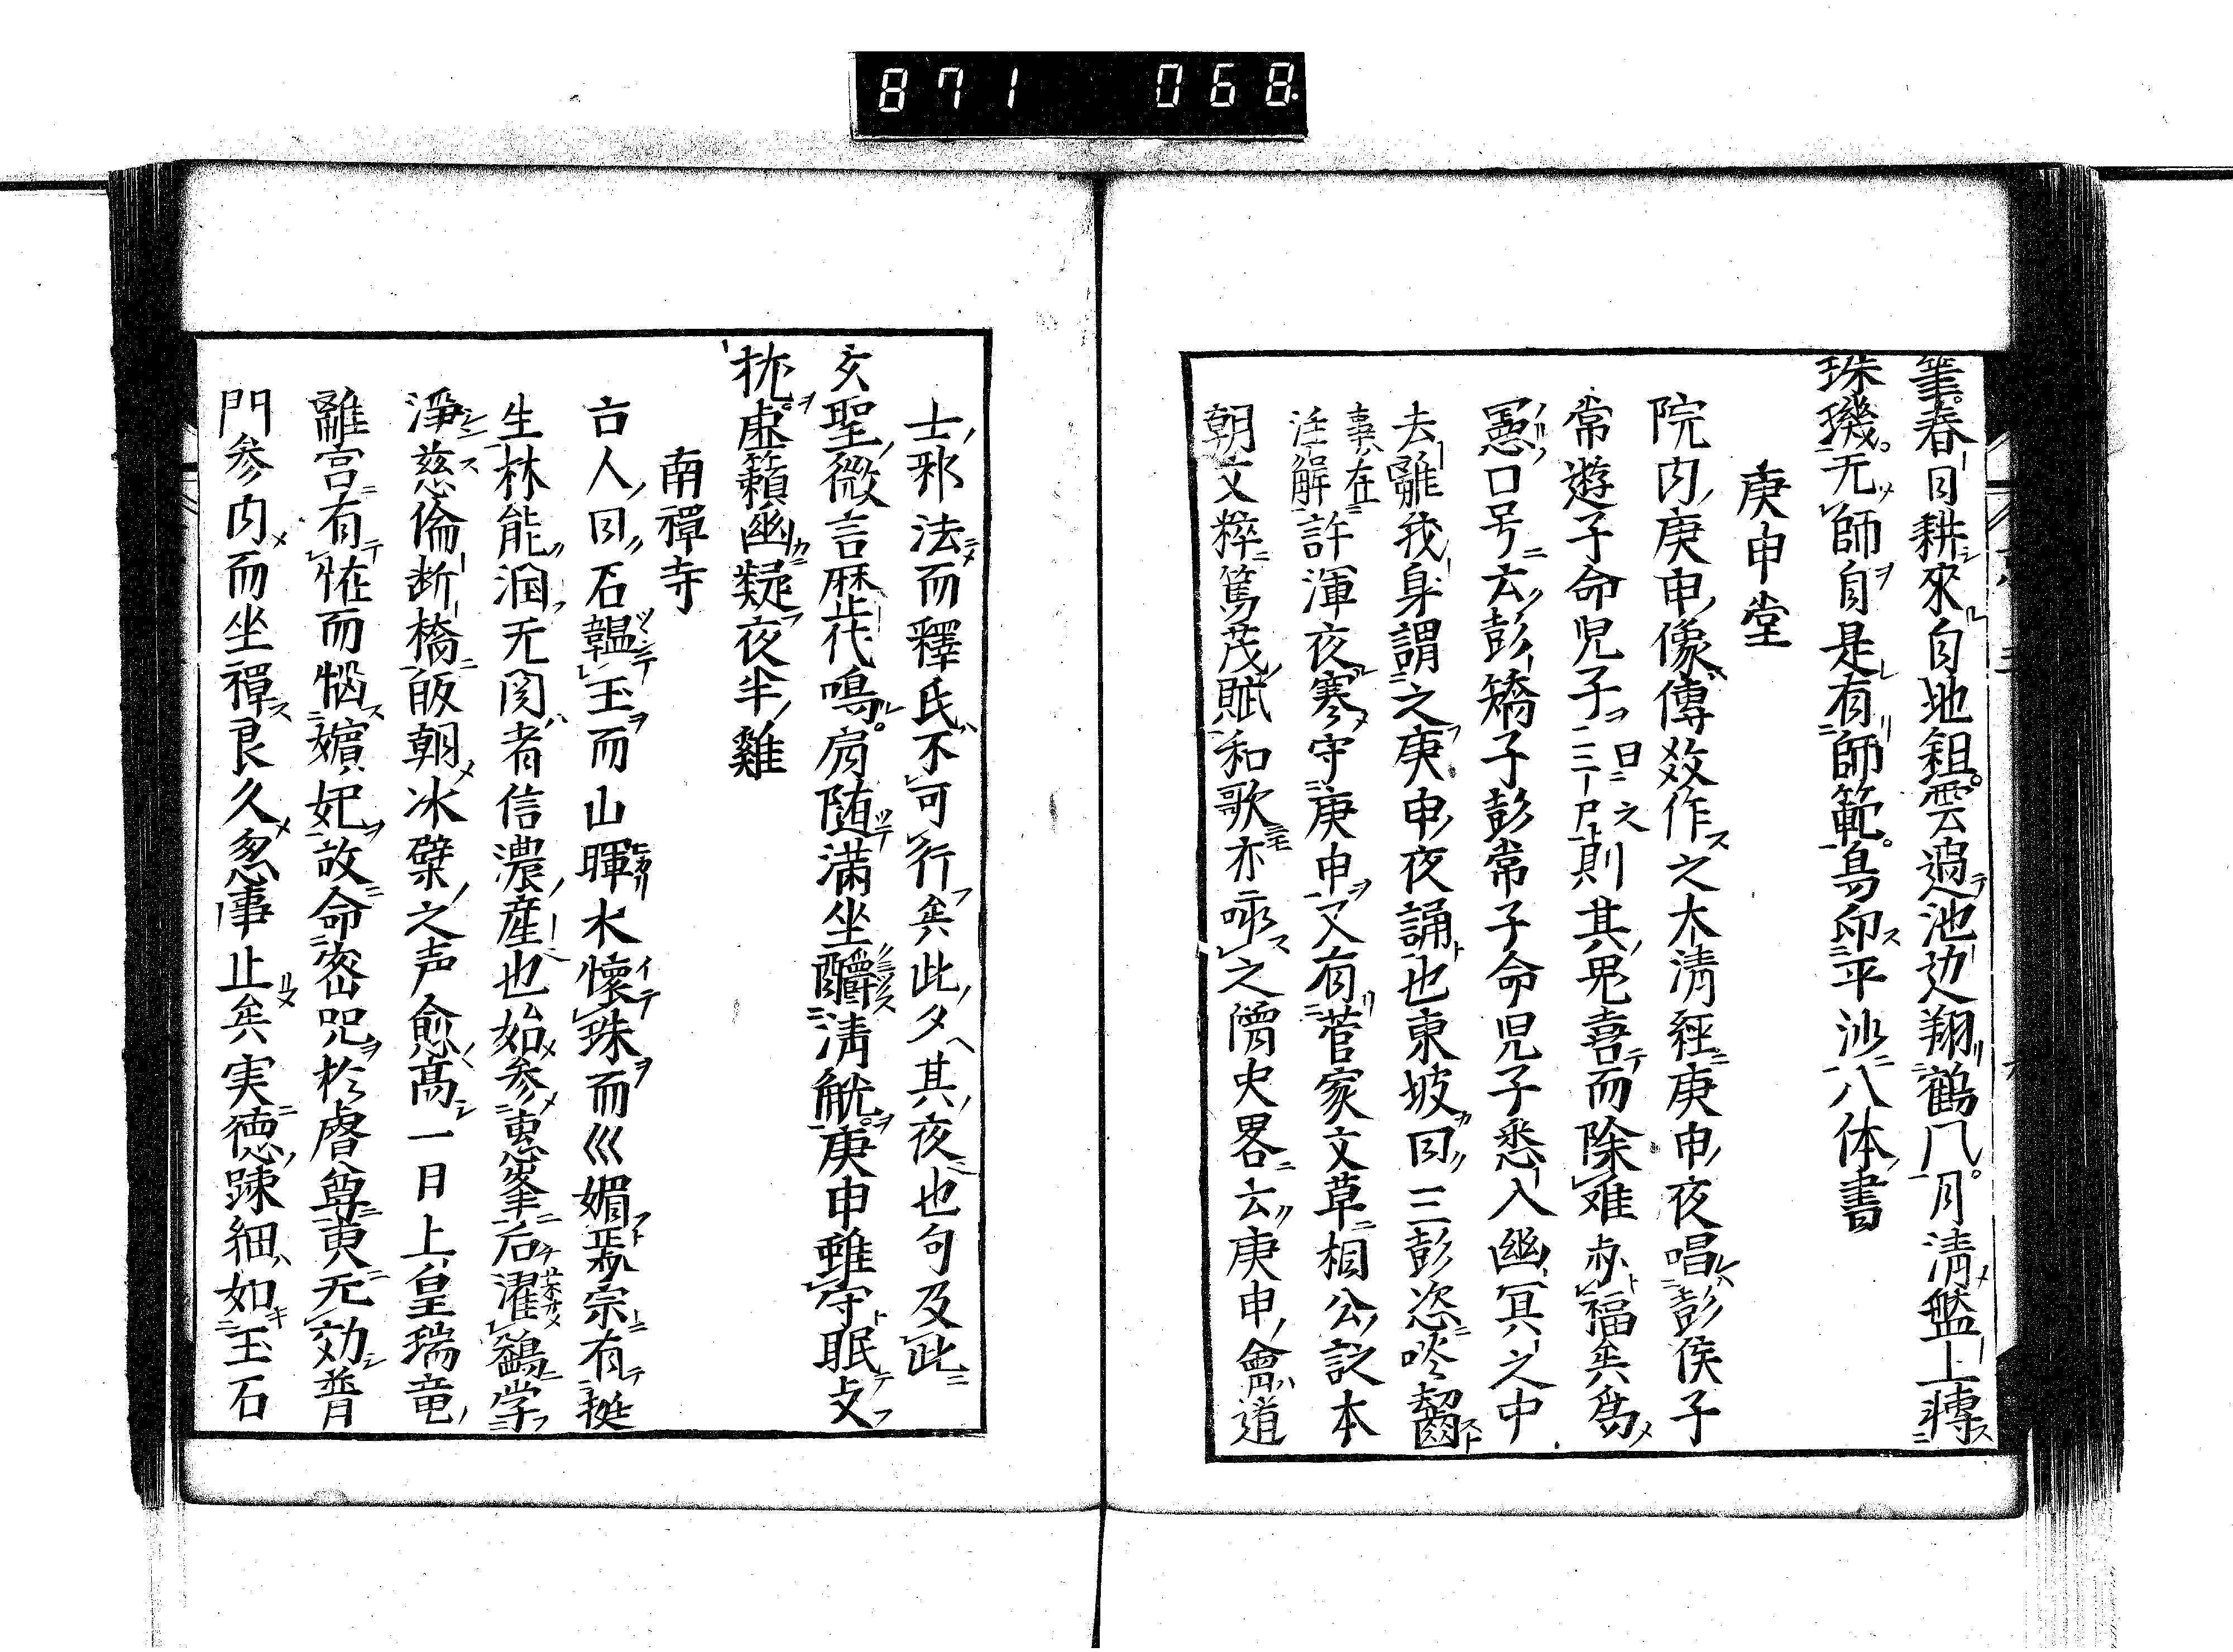 871 068
筆春日耕來自地鉏雲過池边翔鶴几月清盤上轉
珠璣无師自是有師範鳥印平沙八体書
庚申堂
院内庚申像傳敎作之大清經庚申夜唱彭侯子
常遊子命児子二三尸曰之則其鬼喜而除难赤福矣爲
愚口号云彭矯子彭常子命児子悉入幽冥之中
去離我身謂之庚申夜誦也東坡曰三彭恣啖齧
事在注解許渾夜寒守庚申又有菅家文草相公訳本
朝文粹篤茂賦和歌亦咏之僧史畧云庚申會道
士邪法而釋氏不可行矣此夕其夜也句及此
亥聖微言歴代鳴扃随滿坐釂淸觥庚申雖守眠支
枕虚籟幽疑夜半雞
南禪寺
古人曰石韞玉而山暉水懷珠而巛媚聚宗有挺
生林能潤无関者信濃産也始参惠峯后濯鷁学
淨慈倫断橋皈朝冰檗之声愈高一日上皇瑞竜
離宮有恠而惱嬪妃故命密咒於睿尊輿无効普
門参内而坐禪良久忽事止矣実徳踈細如玉石